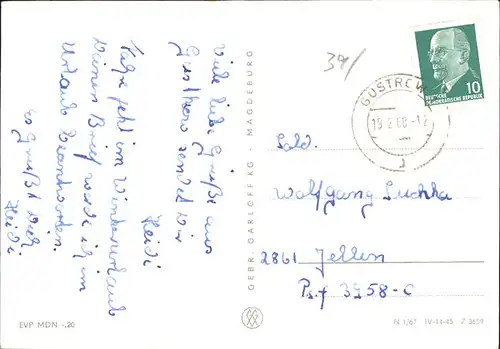 Viele liebe Grüße aus
Güsthrow sendet Dir
Heidi
Fahre jetzt im Winterurlaub
Deinen Brief werde ich im
Urlaub beantworten.
es grüßt Dich
Heidi
39/
GÜSTROW
19.2.68-12
DEUTSCHE
DEMOKRATISCHE REPUBLIK
10
Sold.
Wolfgang
2861
Psf 3958-C
GEBR. GARLOFF KG. · MAGDEBURG
EVP MDN -,20
N 1/67 IV-14-45 Z 3659